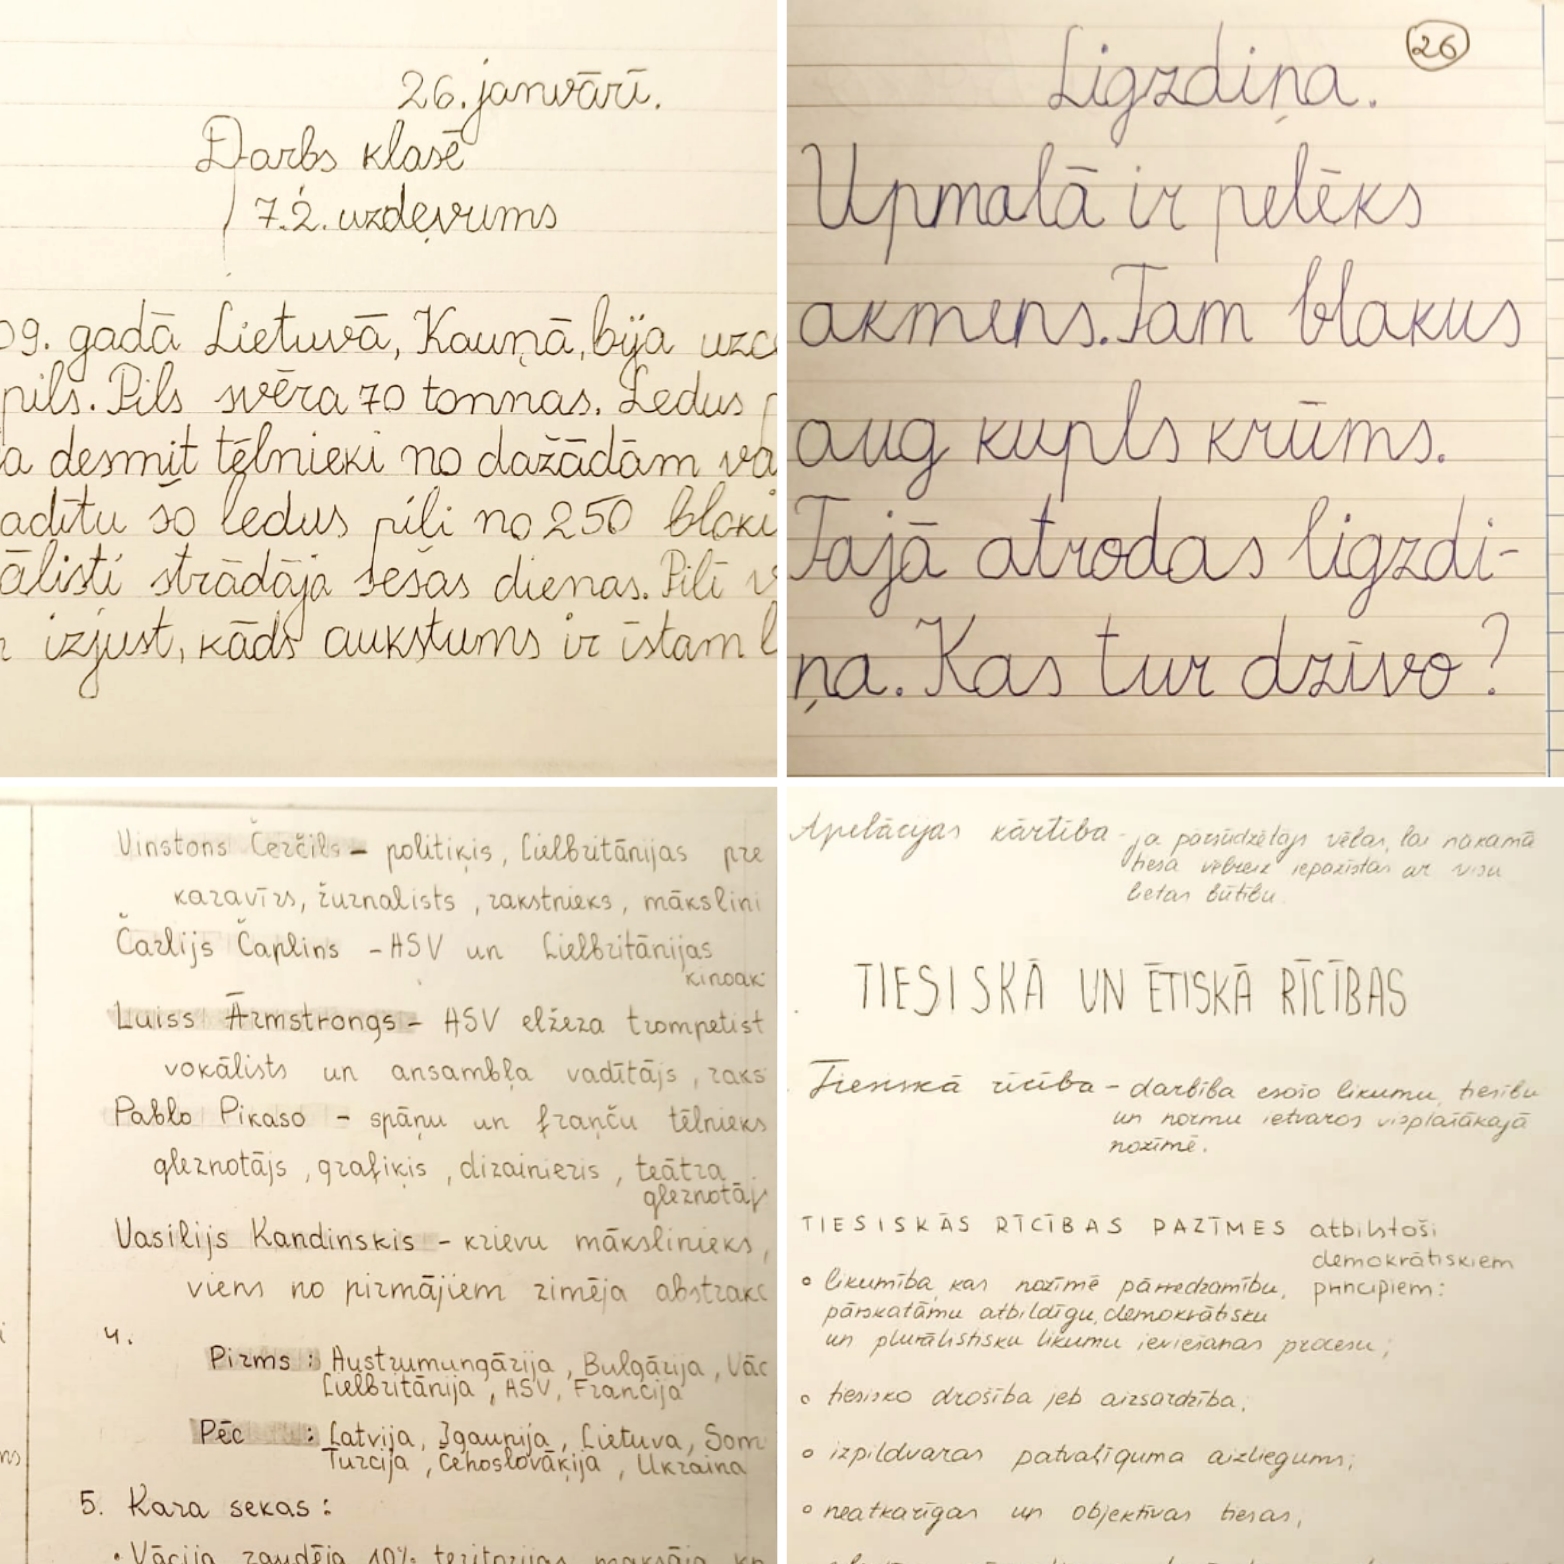 26. janvārī.
Darbs klasē
7.2. uzdevums
09. gadā Lietuvā, Kauņā, bija uzc
pils. Pils svēra 70 tonnas. Ledus p
a desmit tēlnieki no dažādām va
adītu šo ledus pili no 250 bloki
ālisti strādāja sešas dienas. Pilī v
izjust, kāds aukstums ir īstam l
26
Ligzdiņa.
Upmalā ir pelēks
akmens. Tam blakus
aug kupls krūms.
Tajā atrodas ligzdi-
ņa. Kas tur dzīvo?
Vinstons Čerčils - politiķis, Lielbritānijas pre
karavīrs, žurnālists, rakstnieks, mākslini
Čarlijs Čaplins - ASV un Lielbritānijas
kinoak
Luiss Ārmstrongs - ASV elžeza trompetist
vokālists un ansambļa vadītājs, raks
Pablo Pikaso - spāņu un franču tēlnieks
gleznotājs, grafiķis, dizainieris, teātra
gleznotāj
Vasilijs Kandinskis - krievu mākslinieks,
viens no pirmājiem zimēja abstrakc
4.
Pirms : Austrumungārija, Bulgārija, Vāc
Lielbritānija, ASV, Francija
Pēc : Latvija, Igaunija, Lietuva, Som
Turcija, Čehoslovāķija, Ukraina
5. Kara sekas:
• Vācija zaudēja 10% teritorijas, maksāja
Apelācijas kārtība - ja pārsūdzētājs vēlas, lai nākamā
tiesa vēlreiz iepazīstas ar visu
lietas būtību.
TIESISKĀ UN ĒTISKĀ RĪCĪBAS
Tiesiskā rīcība - darbība esošo likumu, tiesību
un normu ietvaros visplašākajā
nozīmē.
TIESISKĀS RĪCĪBAS PAZĪMES atbilstoši
demokrātiskiem
principiem:
◦ likumība, kas nozīmē pārredzamību,
pārskatāmu atbildīgu, demokrātisku
un plurālistisku likumu ieviešanas procesu;
◦ tiesisko drošība jeb aizsardzība;
◦ izpildvaras patvaļīguma aizliegums;
◦ neatkarīgas un objektīvas tiesas;